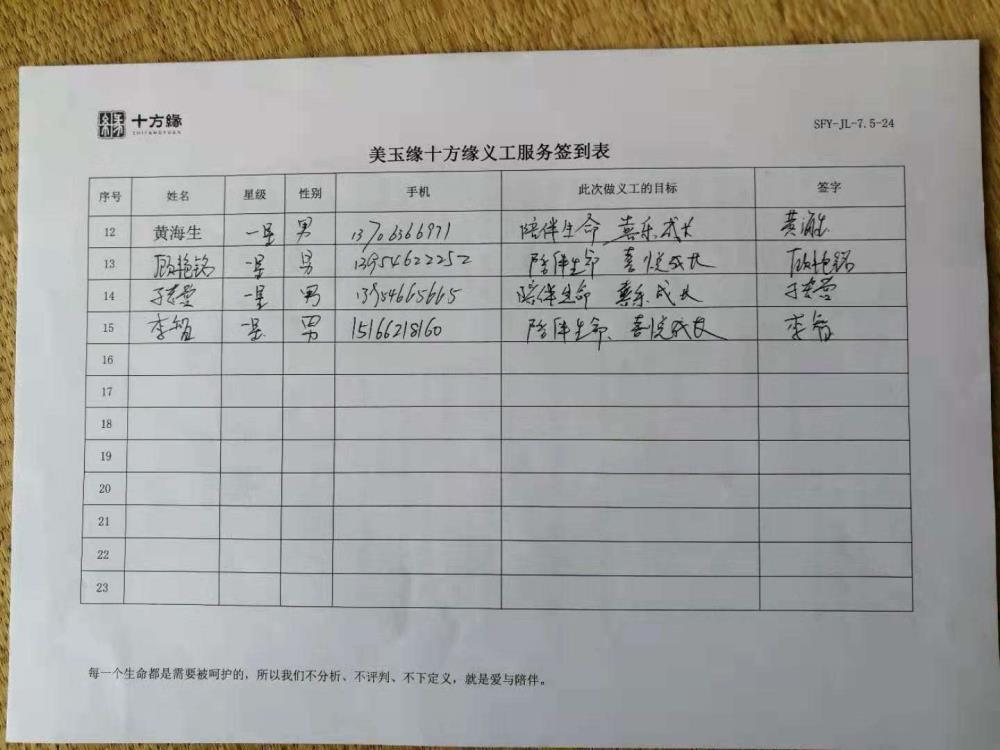 十方緣
SHIFANGYUAN
SFY-JL-7.5-24
美玉缘十方缘义工服务签到表
序号 姓名 星级 性别 手机 此次做义工的目标 签字
12 黄海生 一星 男 13706366971 陪伴生命 喜乐成长 黄海生
13 顾艳铭 一星 男 13954622252 陪伴生命 喜悦成长 顾艳铭
14 一星 男 13954665665 陪伴生命 喜乐成长
15 李智 一星 男 15166218160 陪伴生命、喜悦成长 李智
16
17
18
19
20
21
22
23
每一个生命都是需要被呵护的，所以我们不分析、不评判、不下定义，就是爱与陪伴。